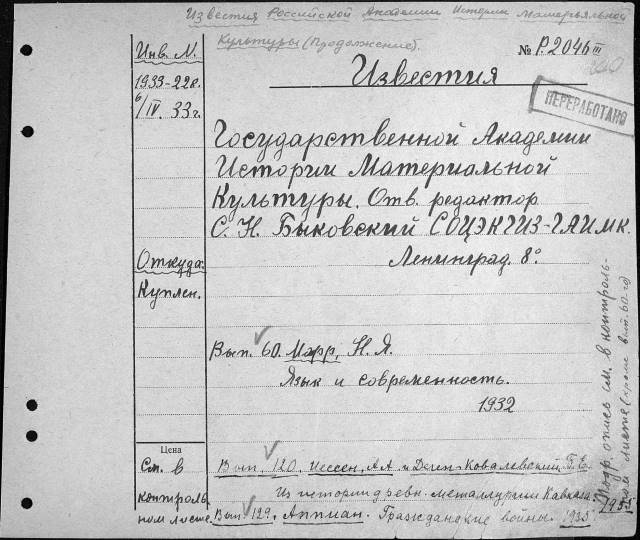 Известия Российской Академии Истории Матерьяльной
Культуры (Продолжение).
№ Р.2046 III
Инв. №.
1933-228.
6/IV 33 г.
Известия
ПЕРЕРАБОТАНО
Государственной Академии
Истории Материальной
Культуры. Отв. редактор
С. Н. Быковский СОЦЭКГИЗ-ГАИМК.
Ленинград. 8°.
Откуда:
Куплен.
Вып. 60. Марр, Н. Я.
Язык и современность.
1932
Цена
См. в
контроль
ном листе
Вып. 120. Иессен, А.А. и Деген-Ковалевский, Б. Е.
Из истории древн. металлургии Кавказа
1935
Вып. 129. Аппиан. Гражданские войны. 1935
опись см. в контроль-
ном листе (кроме вып. 60-го)